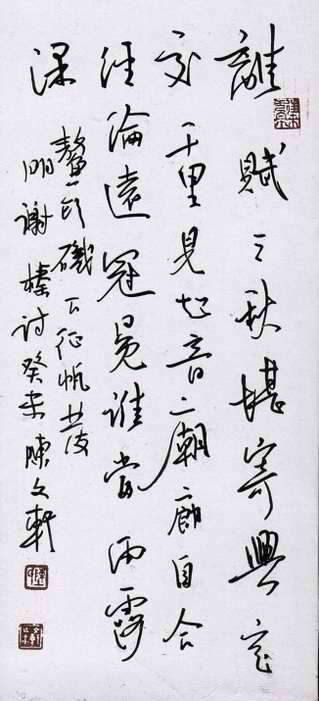 離賦三秋堪寄興定
交千里見知音廟廊自合
經綸遠冠冕誰當雨露
深
鰲頭磯下征帆發
明謝榛詩癸未陳文軒